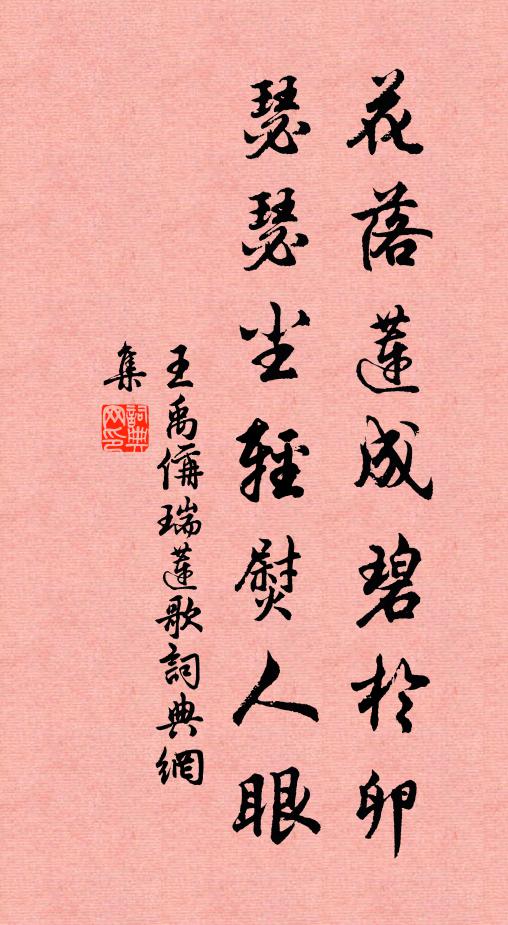 花落蓮成碧於卵
瑟瑟尘輕熨人眼
王禹偁瑞蓮歌詞典網
集
詞典
网印